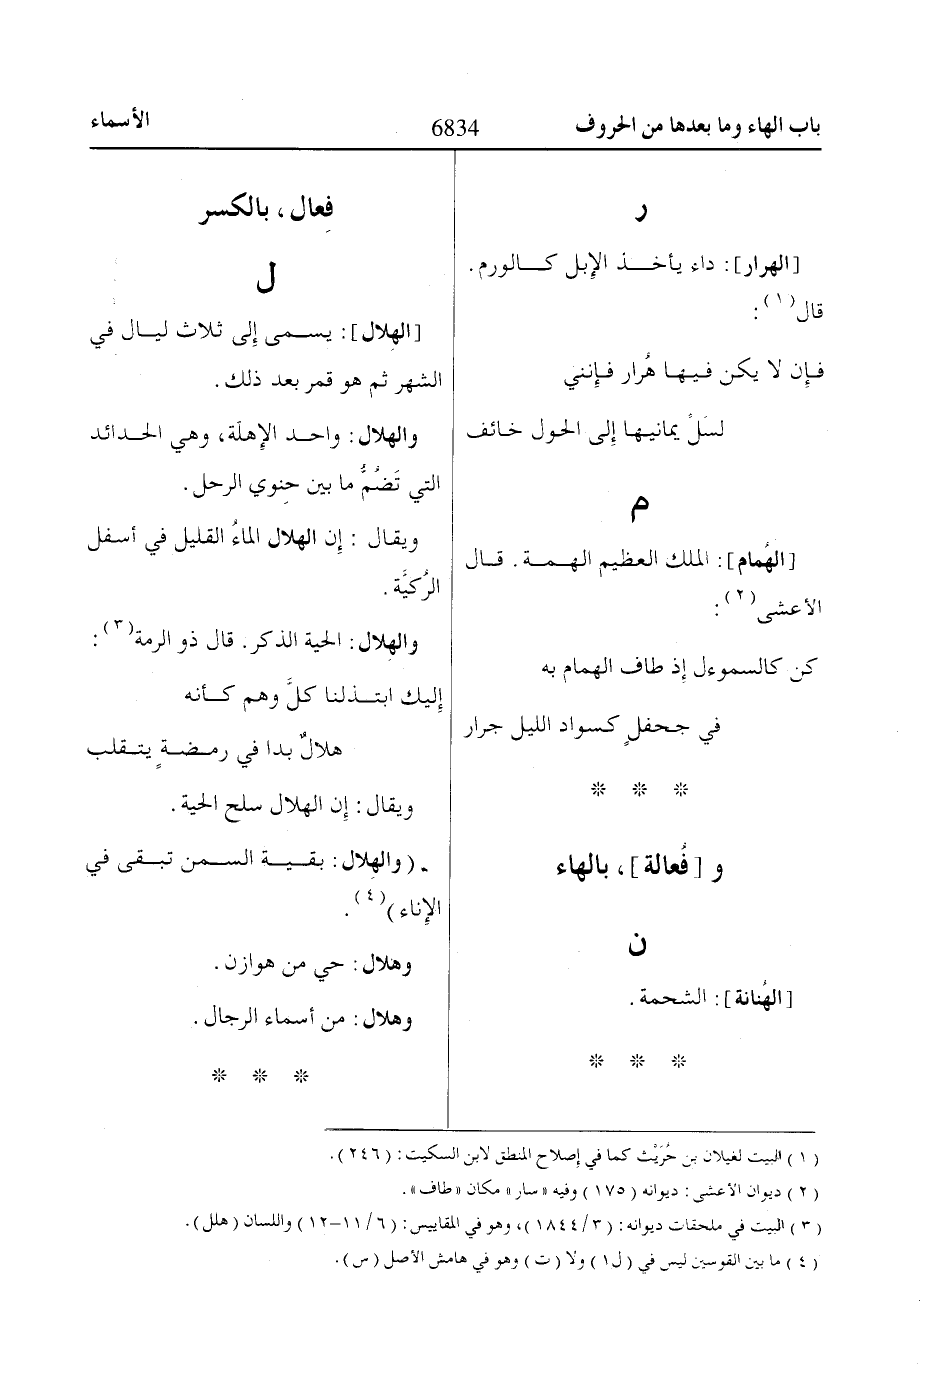 باب الهاء وما بعدها من الحروف 6834 الأسماء
ر
[الهرار]: داء يأخذ الإبل كالورم.
قال(١):
فإن لا يكن فيها هُرار فإنني
لسَلٍّ يمانيها إلى الحول خائف
م
[الهُمام]: الملك العظيم الهمة. قال
الأعشى(٢):
كن كالسموءل إذ طاف الهمام به
في جحفلٍ كسواد الليل جرار
* * *
و [فُعالة]، بالهاء
ن
[الهُنانة]: الشحمة.
* * *
فِعال، بالكسر
ل
[الهلال]: يسمى إلى ثلاث ليال في
الشهر ثم هو قمر بعد ذلك.
والهلال: واحد الإهلّة، وهي الحدائد
التي تَضُمُّ ما بين حِنوي الرحل.
ويقال: إن الهلال الماءُ القليل في أسفل
الرُكيَّة.
والهلال: الحية الذكر. قال ذو الرمة(٣):
إليك ابتذلنا كلَّ وهم كأنه
هلالٌ بدا في رمضةٍ يتقلب
ويقال: إن الهلال سلخ الحية.
. (والهلال: بقية السمن تبقى في
الإناء)(٤).
وهلال: حي من هوازن.
وهلال: من أسماء الرجال.
* * *
(١) البيت لغيلان بن حُرَيْث كما في إصلاح المنطق لابن السكيت: (٢٤٦).
(٢) ديوان الأعشى: ديوانه (١٧٥) وفيه «سار» مكان «طاف».
(٣) البيت في ملحقات ديوانه: (٣/١٨٤٤)، وهو في المقاييس: (٦/١١-١٢) واللسان (هلل).
(٤) ما بين القوسين ليس في (ل١) ولا (ت) وهو في هامش الأصل (س).